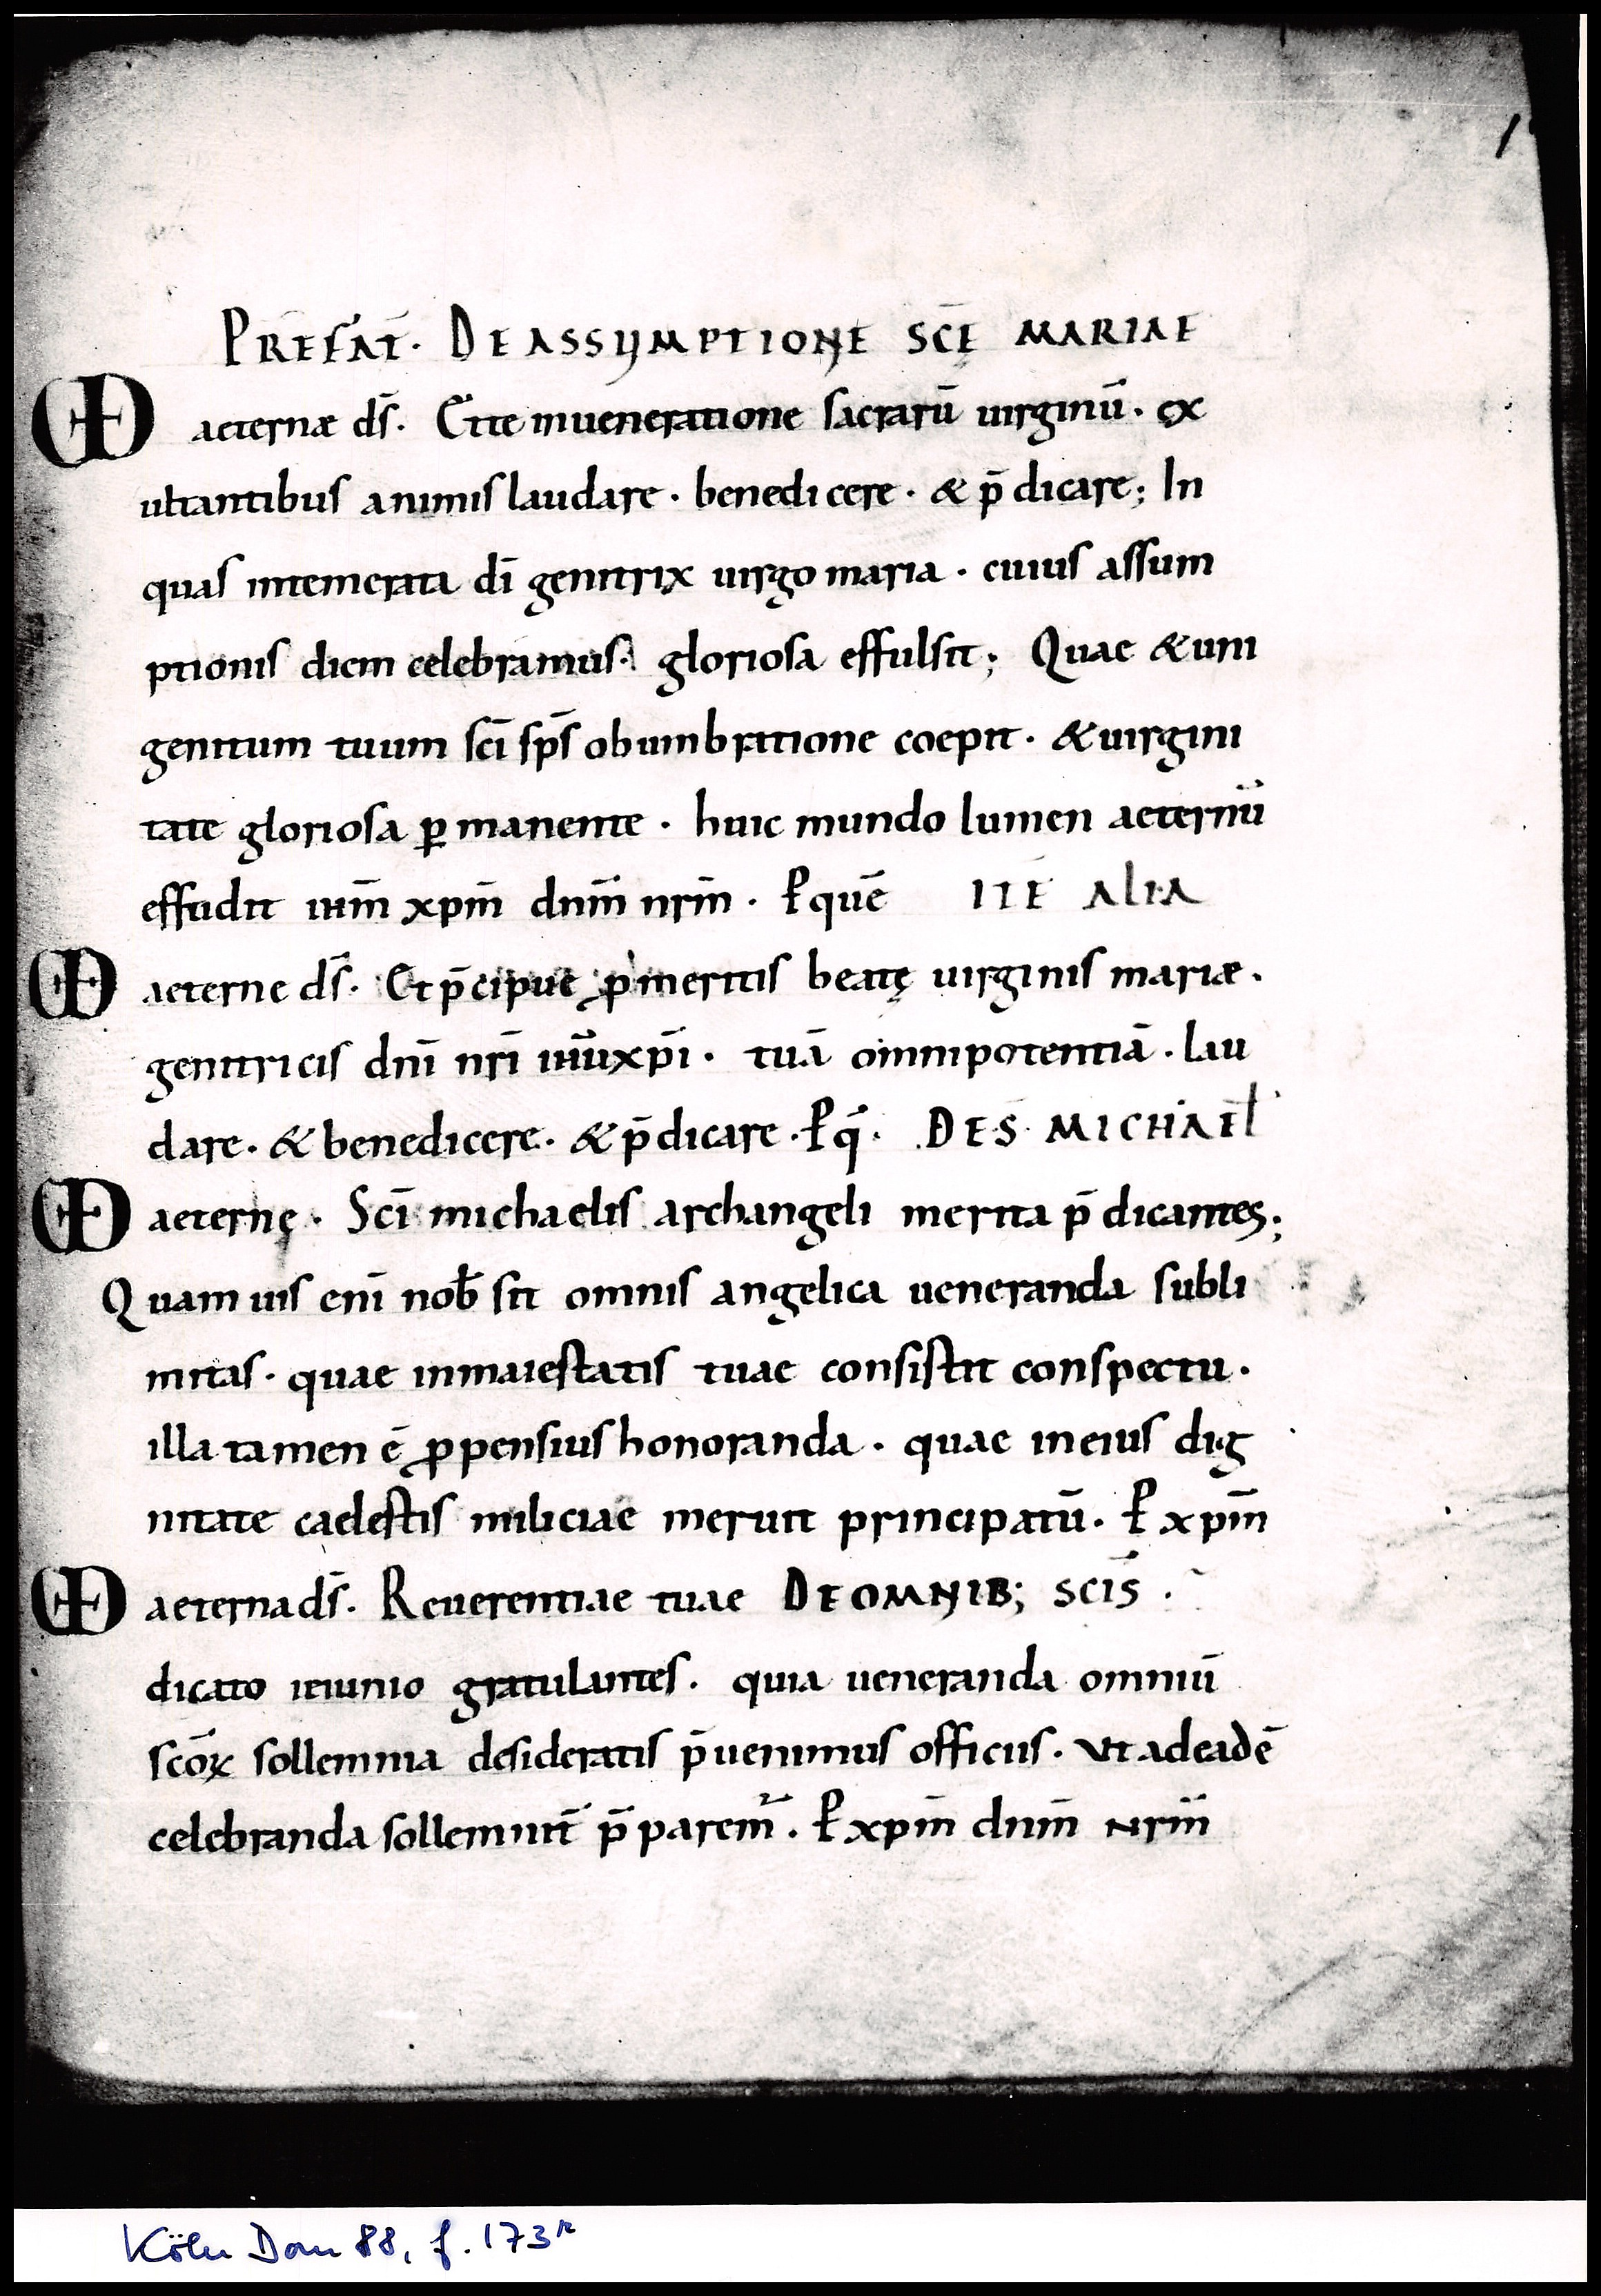 PREFAT̄. DE ASSUMPTIONE SCĒ MARIAE
aeternæ d̄s. Et te inueneratione sacrarū uirginū. ex
ultantibus animis laudare. benedicere. & p̄dicare; In
quas intemerata dī genitrix uirgo maria. cuius assum
ptionis diem celebramus. gloriosa effulsit; Quae & uni
genitum tuum scī sp̄s obumbratione coepit. & uirgini
tate gloriosa ꝑmanente. huic mundo lumen aeternū
effudit ihm̄ xpm̄ dnm̄ nrm̄. P quē ITE ALIA
aeterne d̄s. Et p̄cipue ꝓ meritis beatę uirginis mariæ.
genitricis dnī nrī ihū xpī. tuā omnipotentiā. lau
dare. & benedicere. & p̄dicare. P q̄. DE S MICHAEL
aeternę. Scī michaelis archangeli merita p̄dicantes;
Quam uis enī nob̄ sit omnis angelica ueneranda subli
mitas. quae inmaiestatis tuae consistit conspectu.
illa tamen ē ꝓpensius honoranda. quae in eius dig
nitate caelestis miliciae meruit principatū. P xpm̄
aeternae d̄s. Reuerentiae tuae DE OMNIB; SCIS̄.
dicato ieiunio gratulantes. quia ueneranda omniū
scōꝝ sollemnia desideratis p̄uenimus officiis. Ut ad eadē
celebranda sollemnit̄ p̄parem̄. P xpm̄ dnm̄ nrm̄
Köln Dom 88, f. 173r